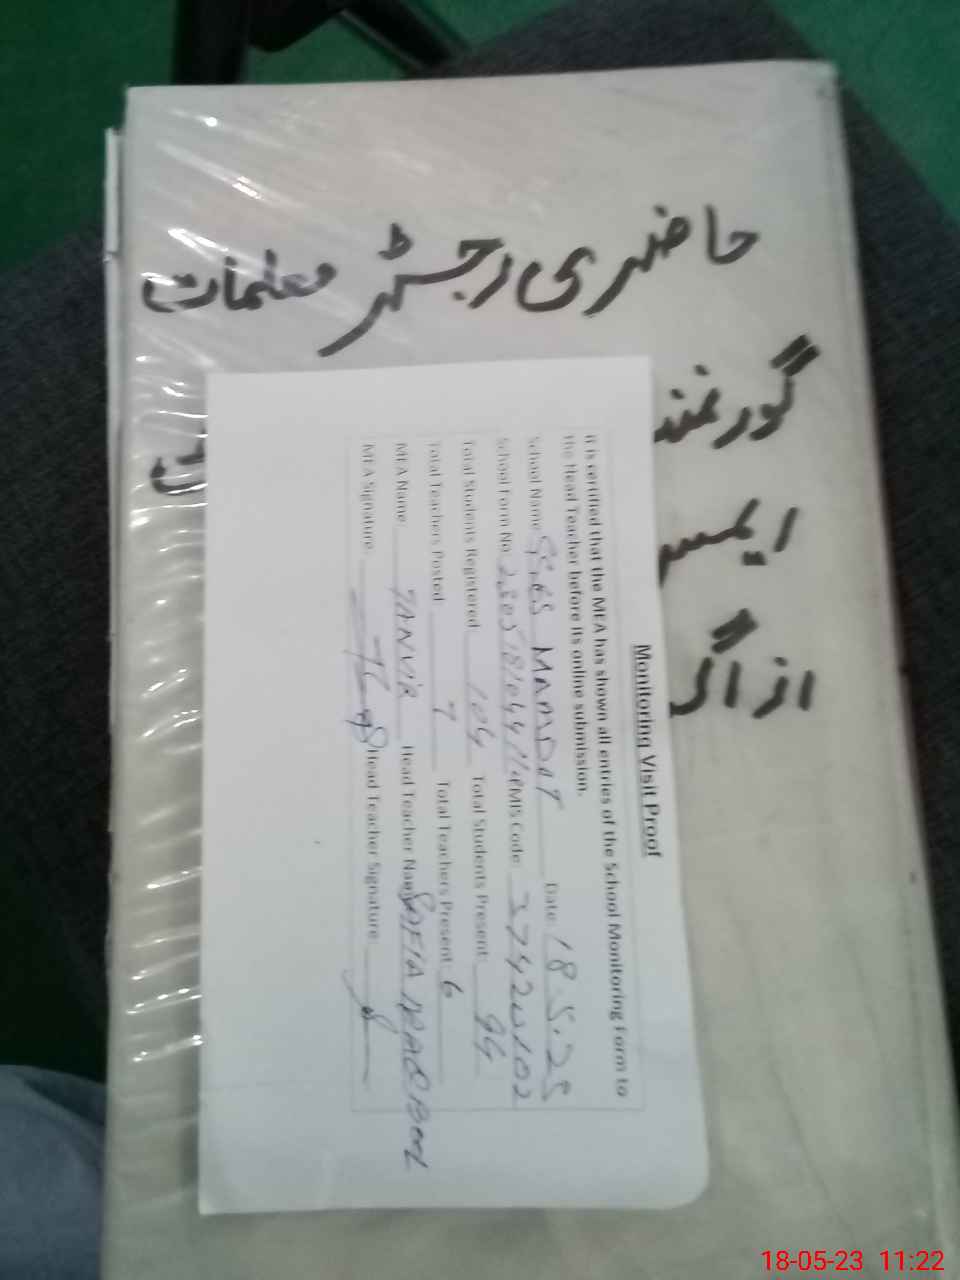 حاضری رجسٹر معلمات
گورنمنٹ
ایلیمنـ
از اگـ
Monitoring Visit Proof
It is certified that the MEA has shown all entries of the School Monitoring Form to
the Head Teacher before its online submission.
School Name MAMDOT Date: 18.5.25
School Form No. EMIS Code:
Total Students Registered: 104 Total Students Present: 94
Total Teachers Posted: 7 Total Teachers Present: 6
MEA Name: TANVIR Head Teacher Name: SAFIA
MEA Signature: Head Teacher Signature:
18-05-23 11:22